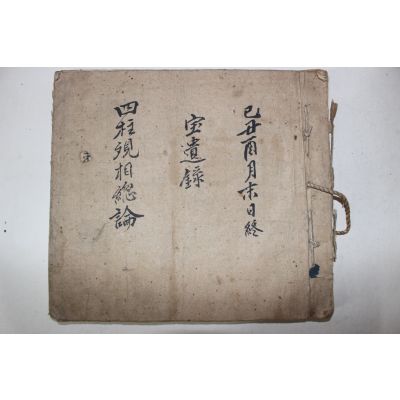 己丑酉月末日終
宝遺錄
四柱現相總論